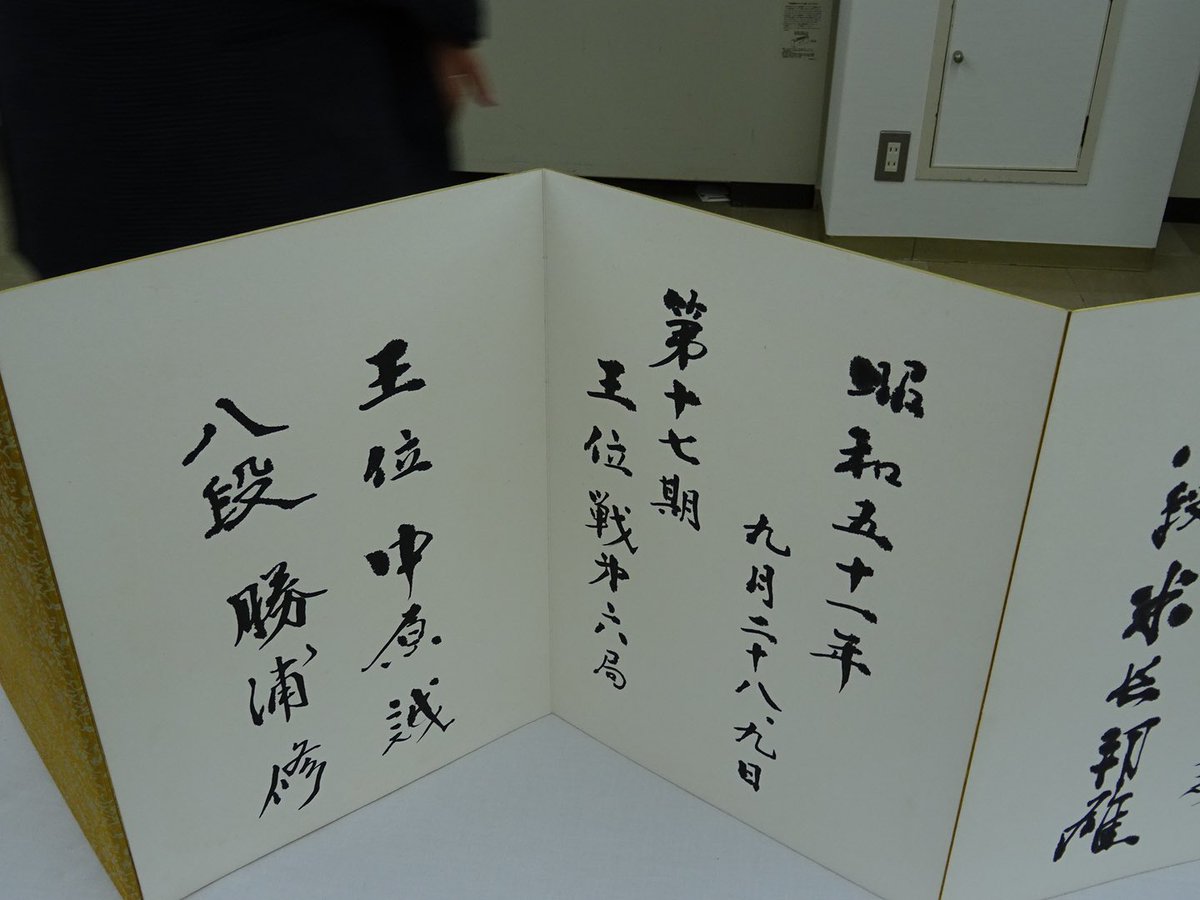 八段 米長邦雄
昭和五十一年
九月二十八、九日
第十七期
王位戦第六局
王位 中原誠
八段 勝浦修